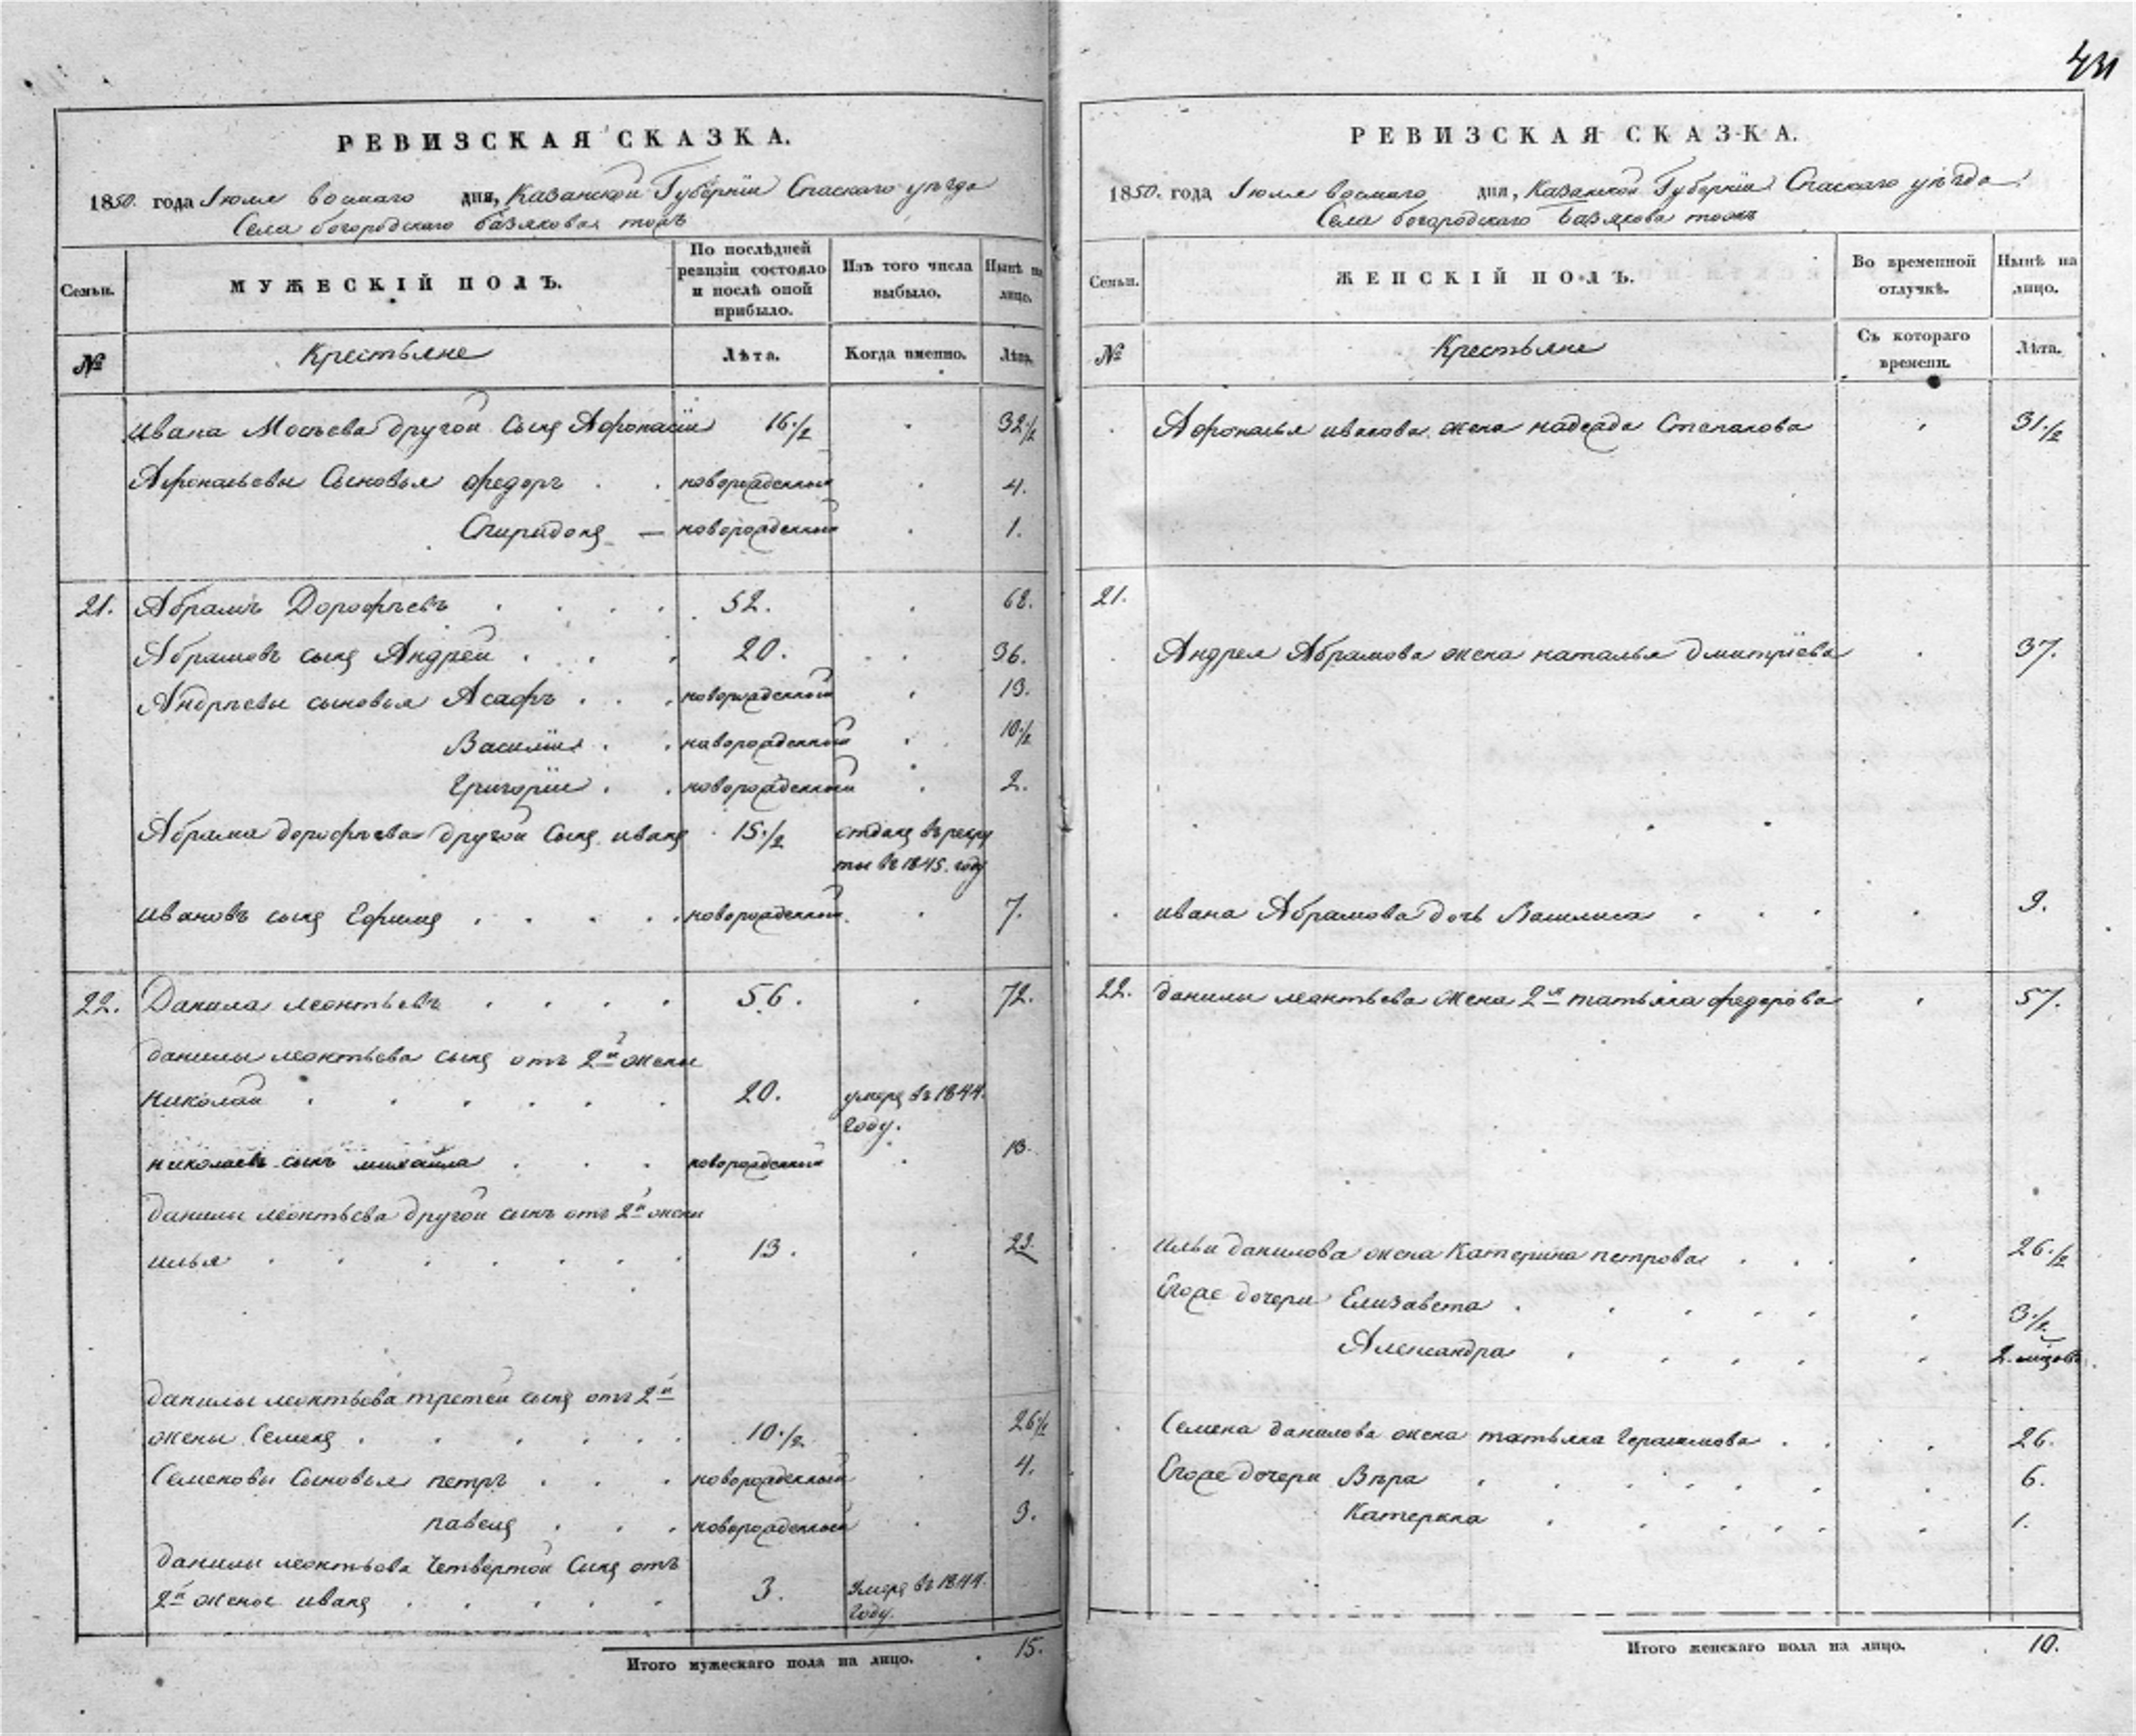 431
РЕВИЗСКАЯ СКАЗКА.
1850. года Іюля восмаго дня, Казанской Губерніи Спаскаго уѣзда
Села богородскаго базякова тожъ
Семьи.
МУЖЕСКІЙ ПОЛЪ.
По послѣдней ревизіи состояло и послѣ оной прибыло.
Изъ того числа выбыло.
Нынѣ на лицо.
№
Крестьяне
Лѣта.
Когда именно.
Лѣта.
ивана Мосѣева другой сынъ Афонасіи 16.½ 32½
Афонасьевы Сыновья федоръ новорожденный 4.
Спиридонъ — новорожденный 1.
21. Абрамъ Дорофѣевъ 52. 68.
Абрамовъ сынъ Андрей 20. 36.
Андрѣевы сыновья Асафъ новорожденный 13.
Василіи новорожденный 10.½
Григоріи новорожденный 2.
Абрама дорофѣева другой Сынъ иванъ 15.½ отданъ въ рекру
ты въ 1845. году
ивановъ сынъ Ефимъ новорожденный 7.
22. Данила леонтьевъ 56. 72.
данилы леонтьева сынъ отъ 2й жены
николай 20. умеръ въ 1844.
году.
николаевъ сынъ михайла новорожденный 13.
данилы леонтьева другой сынъ отъ 2й жены
илья 13. 29.
данилы леонтьева третей сынъ отъ 2й
жены Семенъ 10.½ 26½
Семеновы Сыновья петръ новорожденный 4.
павелъ новорожденный 3.
данилы леонтьева Четвертой Сынъ отъ
2й жены иванъ 3. Умеръ въ 1844.
году.
Итого мужескаго пола на лицо. 15.
РЕВИЗСКАЯ СКАЗКА.
1850. года Іюля восмаго дня, Казанской Губерніи Спаскаго уѣзда
Села богородскаго базякова тожъ
Семьи.
ЖЕНСКІЙ ПОЛЪ.
Во временной отлучкѣ.
Нынѣ на лицо.
№
Крестьяне
Съ котораго времени.
Лѣта.
Афонасья иванова жена надежда Степанова 31.½
21.
Андрея Абрамова жена наталья дмитріева 37.
ивана Абрамова дочь Василиса 9.
22. данилы леонтьева жена 2я татьяна федорова 57.
ильи данилова жена Катерина петрова 26.½
Егоже дочери Елизавета 3.½
Александра 2. мѣсяцовъ
Семена данилова жена татьяна Герасимова 26.
Егоже дочери Вѣра 6.
Катерина 1.
Итого женскаго пола на лицо. 10.